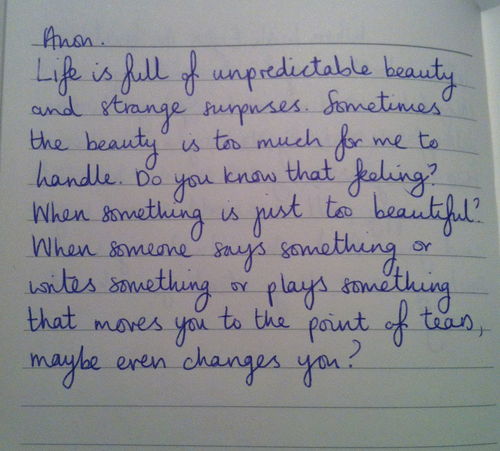 Anon.
Life is full of unpredictable beauty
and strange surprises. Sometimes
the beauty is too much for me to
handle. Do you know that feeling?
When something is just too beautiful?
When someone says something or
writes something or plays something
that moves you to the point of tears,
maybe even changes you?